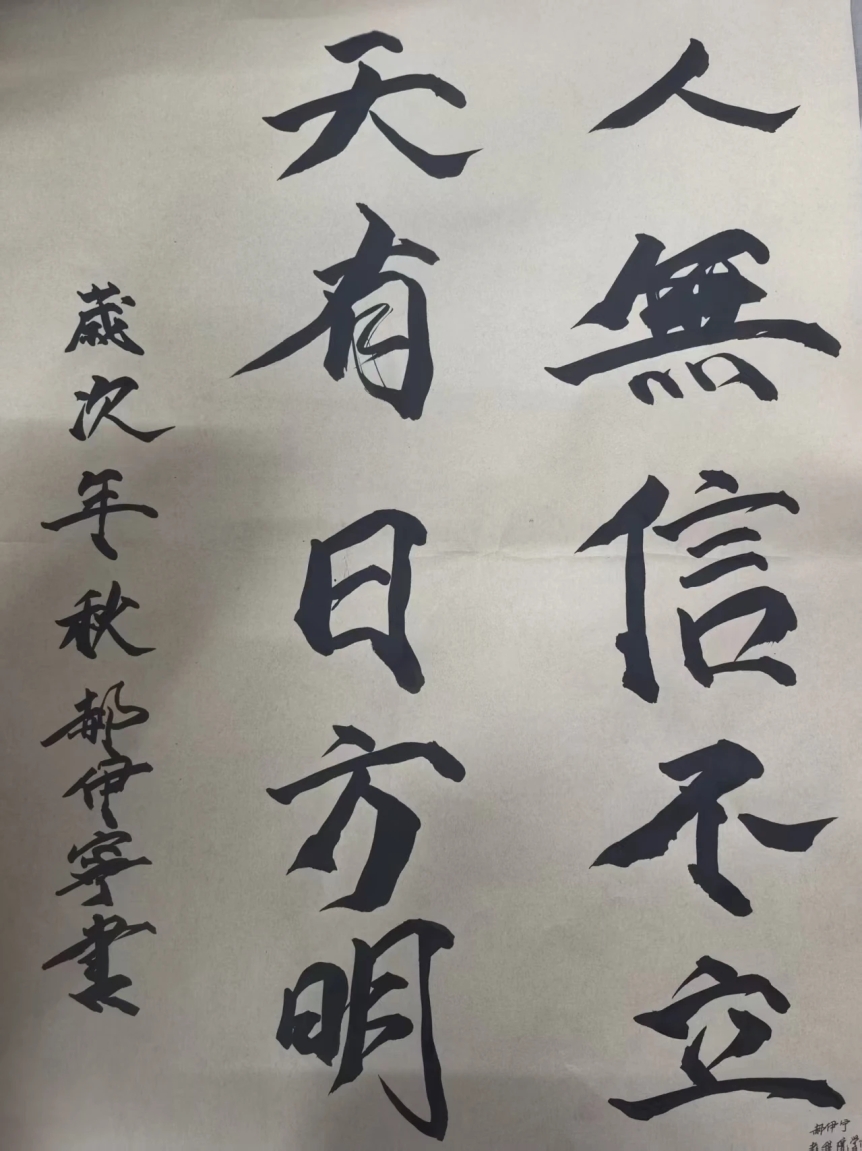 人無信不立
天有日方明
歲次年秋郝伊寧書
郝伊宁